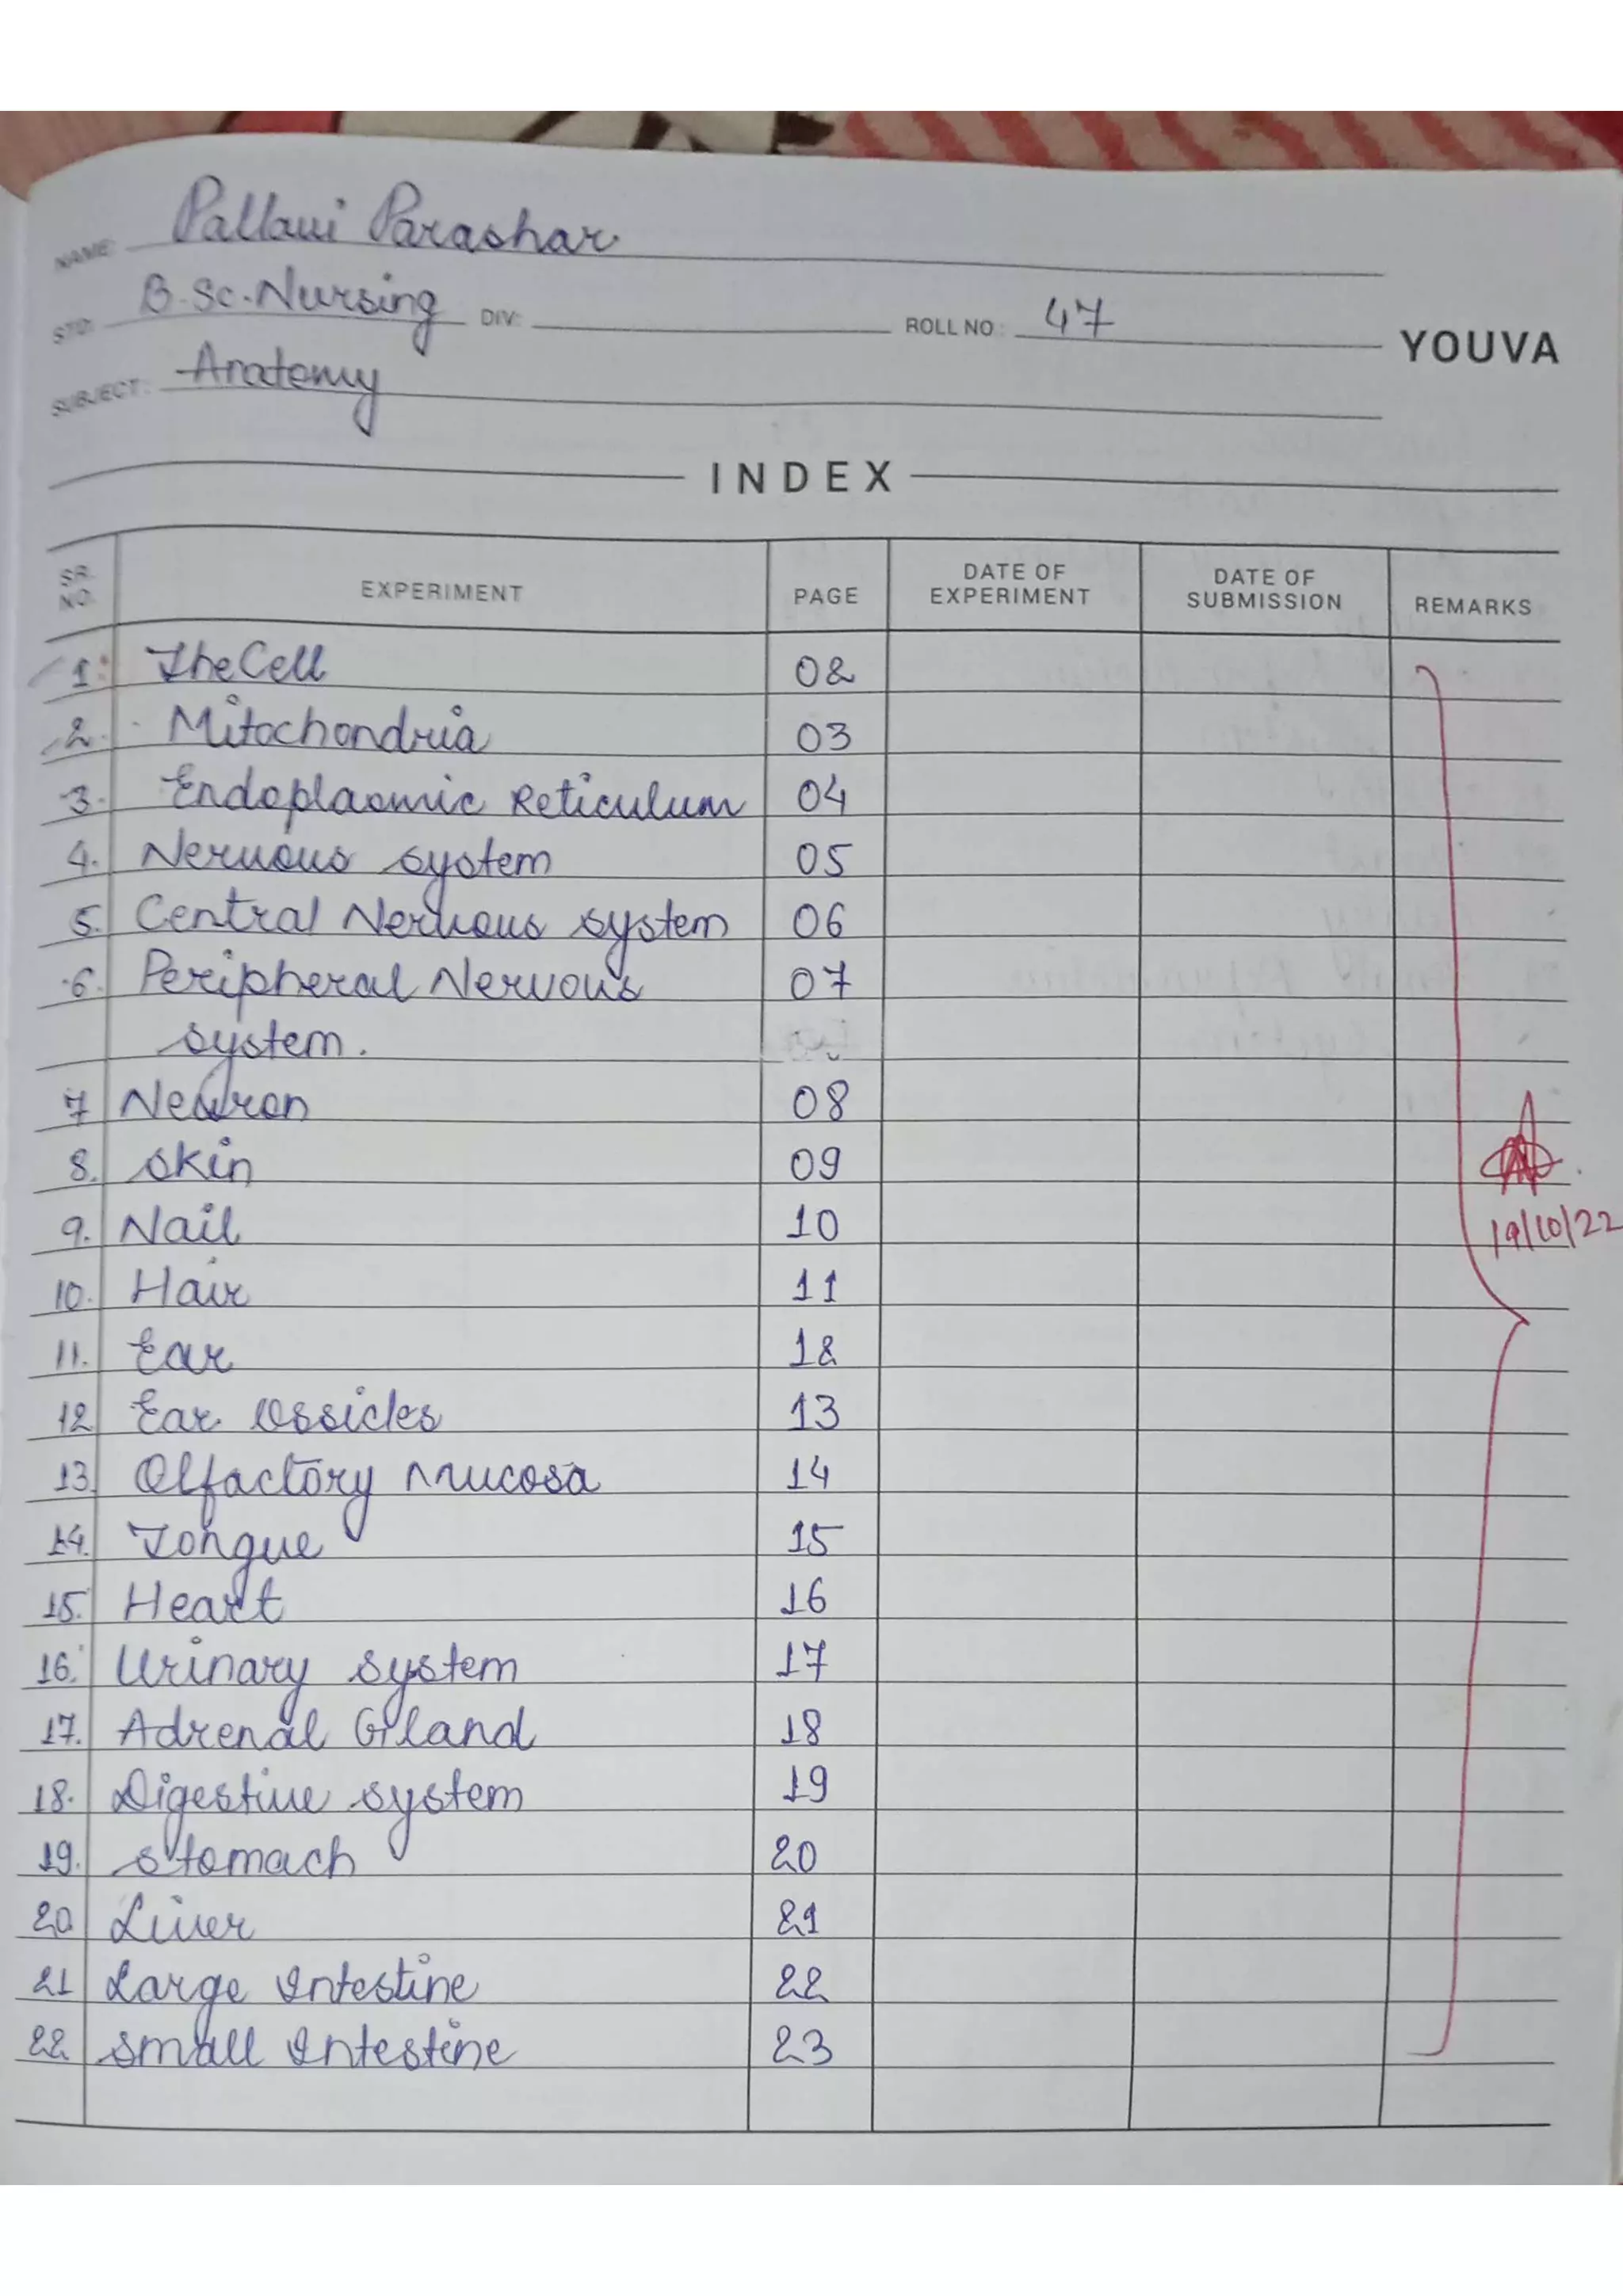 NAME: Pallavi Parashar
STD: B.Sc.Nursing DIV: ROLL NO: 47
YOUVA
SUBJECT: Anatomy
INDEX
SR. NO. EXPERIMENT PAGE DATE OF EXPERIMENT DATE OF SUBMISSION REMARKS
1. The Cell 02
2. Mitochondria 03
3. Endoplasmic Reticulum 04
4. Nervous system 05
5. Central Nervous system 06
6. Peripheral Nervous 07
system.
7 Neuron 08
8. skin 09
9. Nail 10
10. Hair 11
11. Ear 12
12 Ear Ossicles 13
13. Olfactory mucosa 14
14. Tongue 15
15. Heart 16
16. Urinary system 17
17. Adrenal Gland 18
18. Digestive system 19
19. stomach 20
20. Liver 21
21 Large Intestine 22
22. small Intestine 23
19/10/22